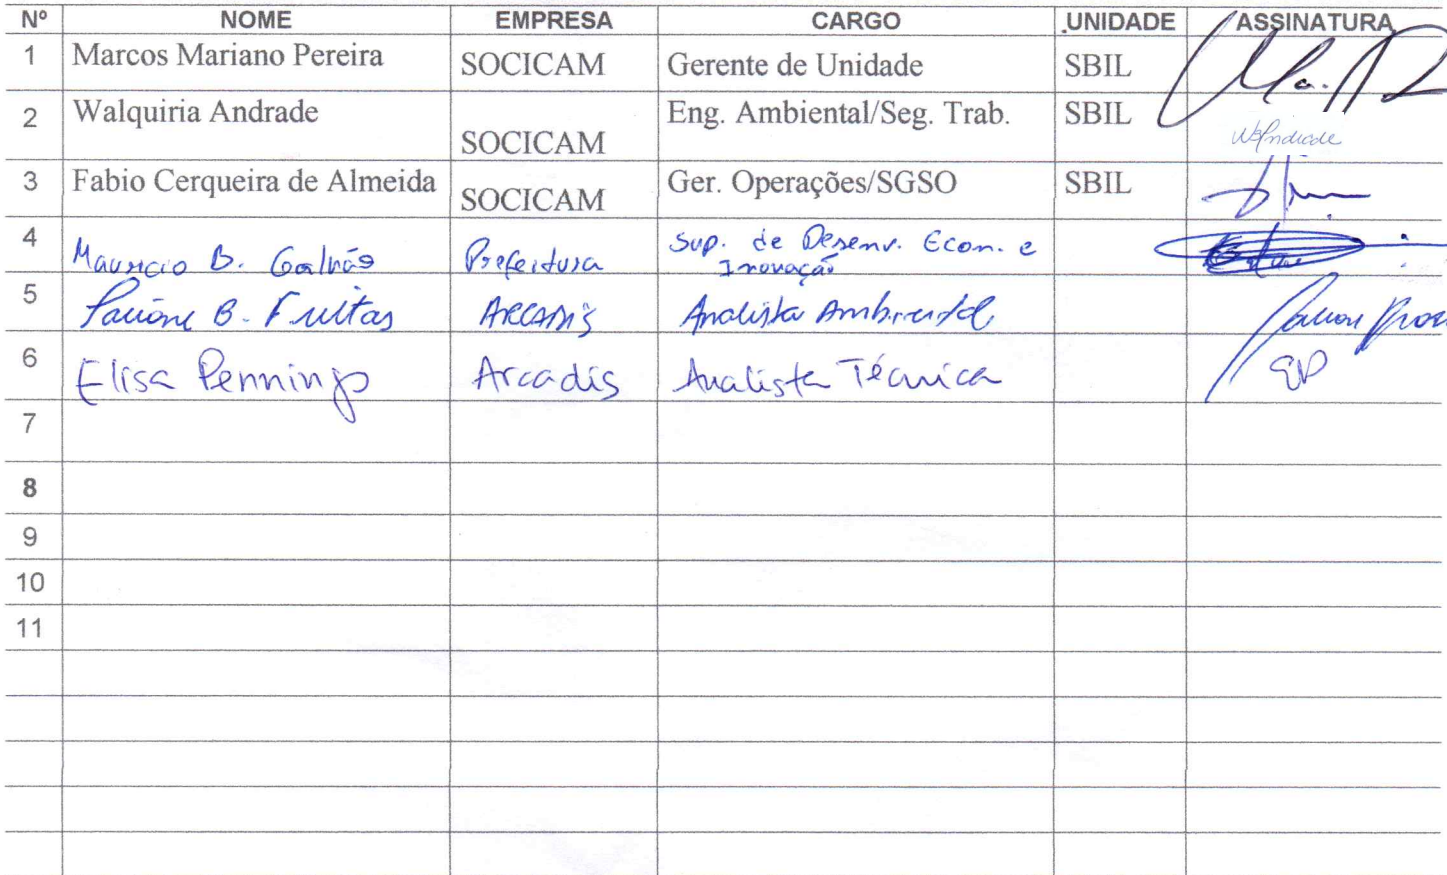 Nº NOME EMPRESA CARGO UNIDADE ASSINATURA
1 Marcos Mariano Pereira SOCICAM Gerente de Unidade SBIL
2 Walquiria Andrade SOCICAM Eng. Ambiental/Seg. Trab. SBIL WAndrade
3 Fabio Cerqueira de Almeida SOCICAM Ger. Operações/SGSO SBIL
4 Mauricio B. Galvão Prefeitura Sup. de Desenv. Econ. e
Inovação
5 B. Freitas ARCADIS Analista Ambiental
6 Elisa Pennings Arcadis Analista Técnica EP
7
8
9
10
11